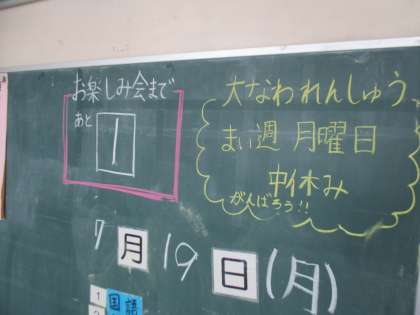 お楽しみ会まで
あと
1
大なわれんしゅう
まい週 月曜日
中休み
がんばろう!!
7月19日(月)
1 国語
2